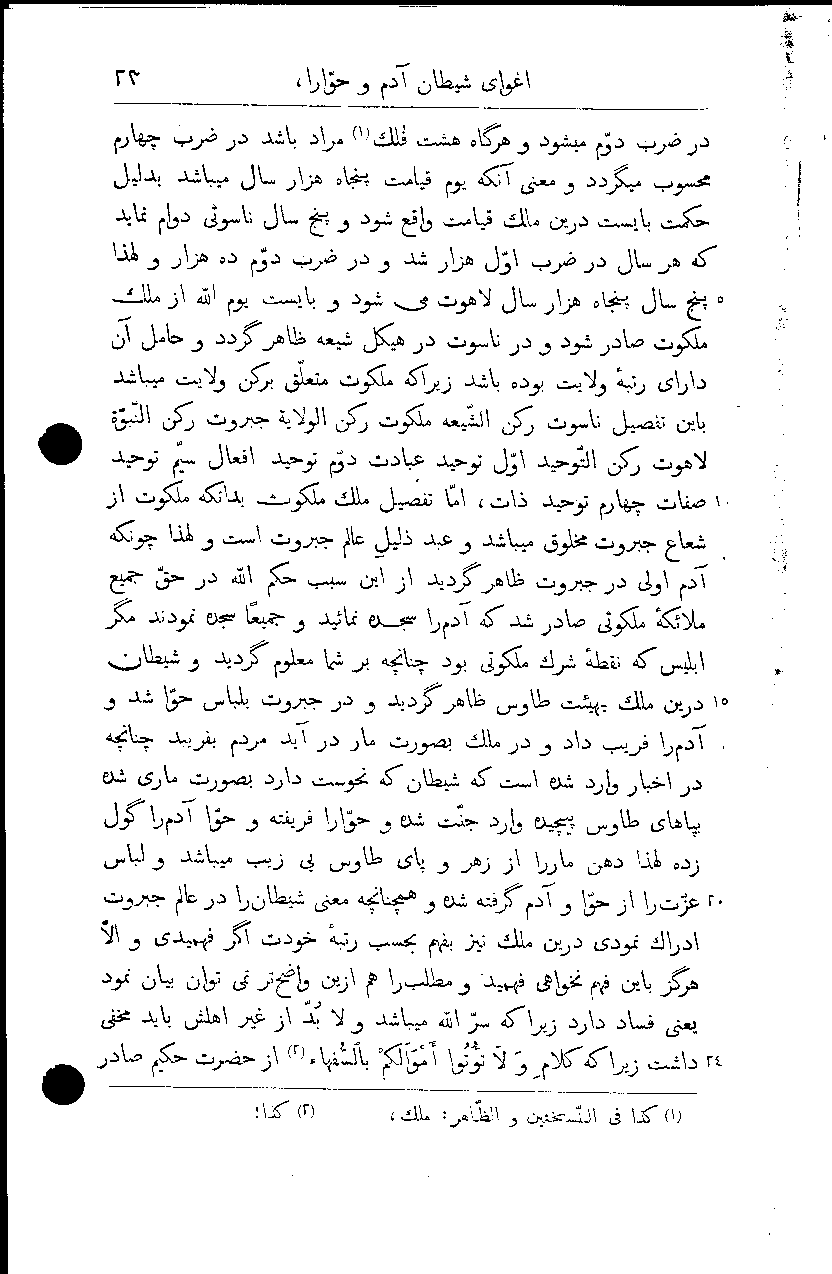 اغوای شیطان آدم و حوّارا، ۲۳
در ضرب دوّم میشود و هرگاه هشت فُلك(۱) مراد باشد در ضرب چهارم
محسوب میگردد و معنی آنکه یوم قیامت پنجاه هزار سال میباشد بدلیل
حکمت بایست درین ملك قیامت واقع شود و پنج سال ناسوتی دوام نماید
که هر سال در ضرب اوّل هزار شد و در ضرب دوّم ده هزار و لهذا
۵ پنج سال پنجاه هزار سال لاهوت می شود و بایست یوم الله از ملك
ملکوت صادر شود و در ناسوت در هیکل شیعه ظاهر گردد و حامل آن
دارای رتبهٔ ولایت بوده باشد زیراکه ملکوت متعلّق برکن ولایت میباشد
باین تفصیل ناسوت رکن الشّیعه ملکوت رکن الولایة جبروت رکن النّبوّة
لاهوت رکن التّوحید اوّل توحید عبادت دوّم توحید افعال سیّم توحید
۱۰ صفات چهارم توحید ذات، امّا تفصیل ملك ملکوت بدانکه ملکوت از
شعاع جبروت مخلوق میباشد و عبد ذلیلِ عالم جبروت است و لهذا چونکه
آدم اولی در جبروت ظاهر گردید از این سبب حکم الله در حقّ جمیع
ملائکهٔ ملکوتی صادر شد که آدم‌را سجده نمائید و جمیعًا سجده نمودند مگر
ابلیس که نقطهٔ شرك ملکوتی بود چنانچه بر شما معلوم گردید و شیطان
۱۵ درین ملك بهیئت طاوس ظاهر گردید و در جبروت بلباس حوّا شد و
آدم‌را فریب داد و در ملك بصورت مار در آید مردم بفریبد چنانچه
در اخبار وارد شده است که شیطان که نحوست دارد بصورت ماری شده
بپاهای طاوس پیچیده وارد جنّت شده و حوّارا فریفته و حوّا آدم‌را گول
زده لهذا دهن ماررا از زهر و پای طاوس بی زیب میباشد و لباس
۲۰ عزّت‌را از حوّا و آدم گرفته شده و همچنانچه معنی شیطان‌را در عالم جبروت
ادراك نمودی درین ملك نیز بفهم بحسب رتبهٔ خودت اگر فهمیدی و الّا
هرگز باین فهم نخواهی فهمید و مطلب‌را هم ازین واضح‌تر نمی توان بیان نمود
یعنی فساد دارد زیراکه سرّ الله میباشد و لا بُدّ از غیر اهلش باید مخفی
۲٤ داشت زیراکه کلام وَ لَا تُؤْتُوا أَمْوَالَكُمْ بِالسُّفَهاء(۲) از حضرت حکیم صادر
(۱) کذا فی النّسختین و الظّاهر: ملك، (۲) کذا!